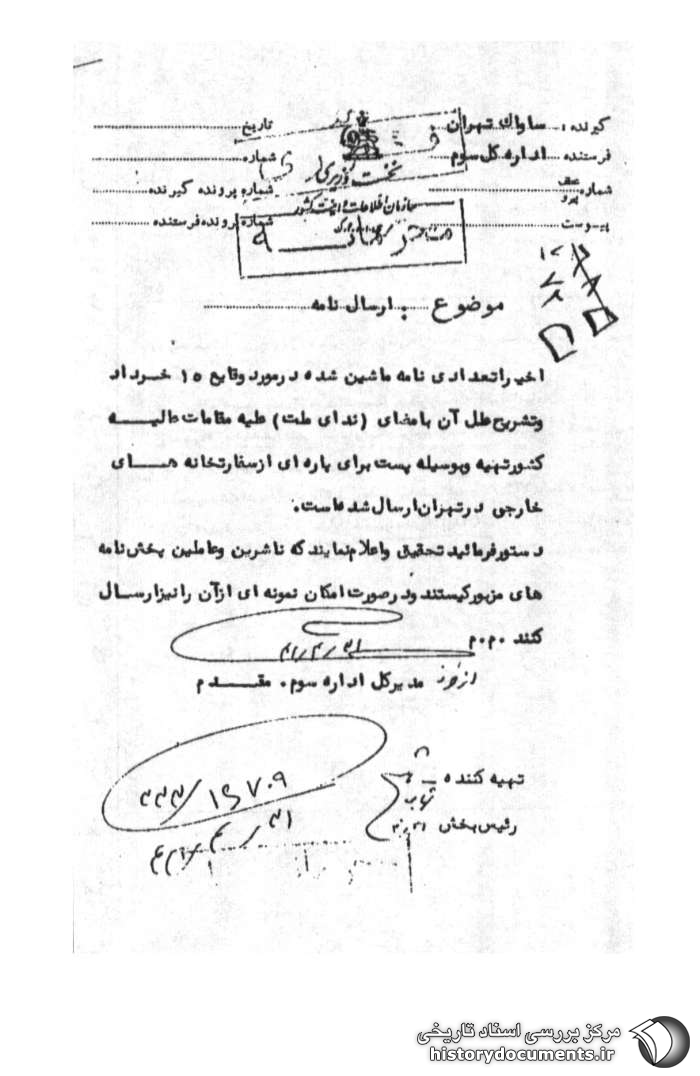 گیرنده : ساواك تهران
تاریخ
فرستنده اداره کل سوم
شماره
نخست وزیری
شماره
عطف
پیرو
شماره پرونده گیرنده
سازمان اطلاعات و امنیت کشور
پیوست
شماره پرونده فرستنده
محرمانه
موضوع : ارسال نامه
اخیرا تعدادی نامه ماشین شده درمورد وقایع ۱۵ خرداد
وتشریح علل آن بامضای (ندای ملت) علیه مقامات عالیه
کشورتهیه وبوسیله پست برای پاره ای ازسفارتخانه های
خارجی درتهران ارسال شده است.
دستورفرمائید تحقیق واعلام نمایند که ناشرین وعاملین پخش نامه
های مزبور کیستند ودرصورت امکان نمونه ای ازآن رانیز ارسال
کنند .م.م
مدیرکل اداره سوم. مقدم
از طرف
تهیه کننده
رئیس بخش
مرکز بررسی اسناد تاریخی
historydocuments.ir